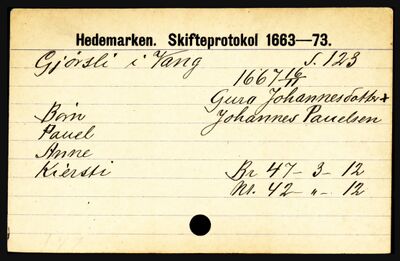 Hedemarken. Skifteprotokol 1663—73.
Gjörsli i Vang S. 123
1667 16/11
Gurg Johannesdatter +
Johannes Pauelsen
Børn
Pauel
Anne
Kiersti Br 47 - 3 - 12
Nt. 42 - " - 12